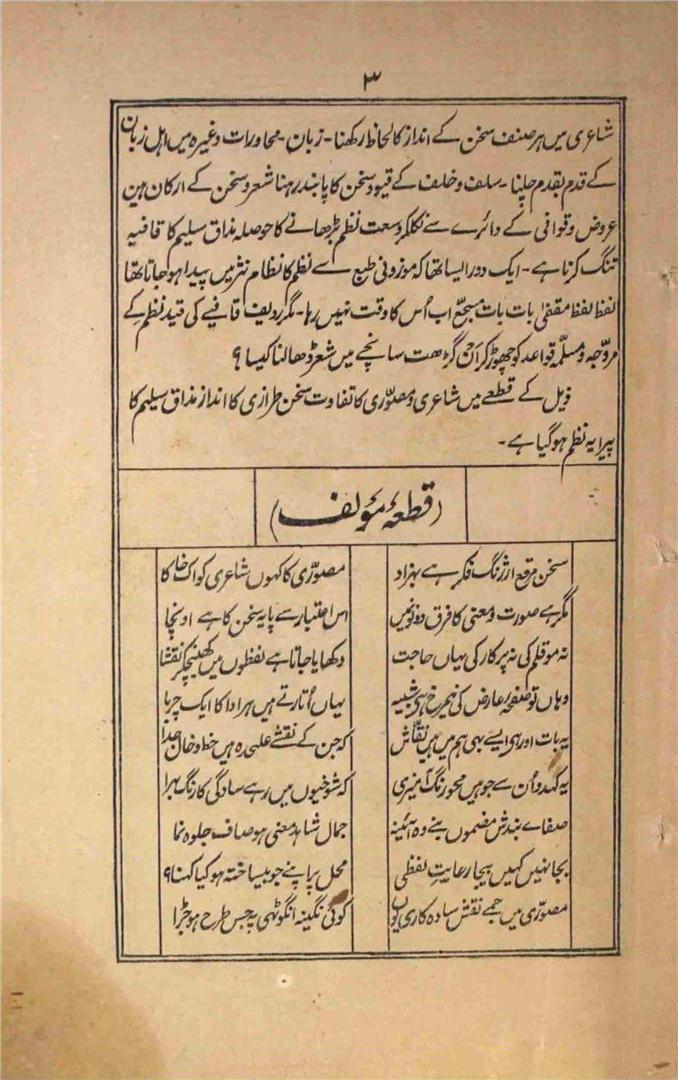 ۳
شاعری میں ہر صنف سخن کے انداز کا لحاظ رکھنا۔ زبان۔ محاورات وغیرہ میں اہل زبان
کے قدم بقدم چلنا۔ سلف و خلف کے قیود سخن کا پابند رہنا شعر و سخن کے ارکان ہین
عروض و قوافی کے دائرے سے نکلکر وسعت نظم بڑھانے کا حوصلہ مذاق سلیم کا قافیہ
تنگ کرنا ہے۔ ایک دور ایسا تھا کہ موزونی طبع سے نظم کا نظام نثر میں پیدا ہو جاتا تھا
لفظ لفظ مقفیٰ بات بات مسجع اب اُس کا وقت نہیں رہا۔ مگر ردیف قافیے کی قید نظم کے
مروّجہ و مسلمہ قواعد کو چھوڑ کر اَن گڑھت سانچے میں شعر ڈھالنا کیسا ؟
ذیل کے قطعے میں شاعری و مصوّری کا تفاوت سخن طرازی کا انداز مذاق سلیم کا
پیرایہ نظم ہو گیا ہے۔
(قطعۂ مؤلف)
سخن مرقع ارژنگ فکر ہے بہزاد مصوّری کا کہوں شاعری کو اک خاکا
مگر ہے صورت و معنی کا فرق دونو نمیں اس اعتبار سے پایہ سخن کا ہے اونچا
نہ موقلم کی نہ پرکار کی یہاں حاجت دکھایا جاتا ہے لفظوں میں کھینچکر نقشا
وہاں تو صفحۂ عارض کی نیم رخ ہی شبیہ یہاں اُتارتے ہیں ہر ادا کا ایک چربا
یہ بات اور ہی ایسے بھی ہم میں ہیں نقّاش کہ جن کے نقشے علیحدہ ہیں خط و خال جدا
یہ کہدو اُن سے جو ہیں محو رنگ آمیزی کہ شوخیوں میں رہے سادگی کا رنگ بہرا
صفاے بندش مضموں بنے وہ آئینہ جمال شاہد معنی ہو صاف جلوہ نما
بجا نہیں کہیں بیجا رعایتِ لفظی محل پر اپنے جو بیساختہ ہو کیا کہنا؟
مصوّری میں جمے نقش سادہ کاری یوں کوئی نگینہ انگوٹھی پہ جس طرح ہو جڑا